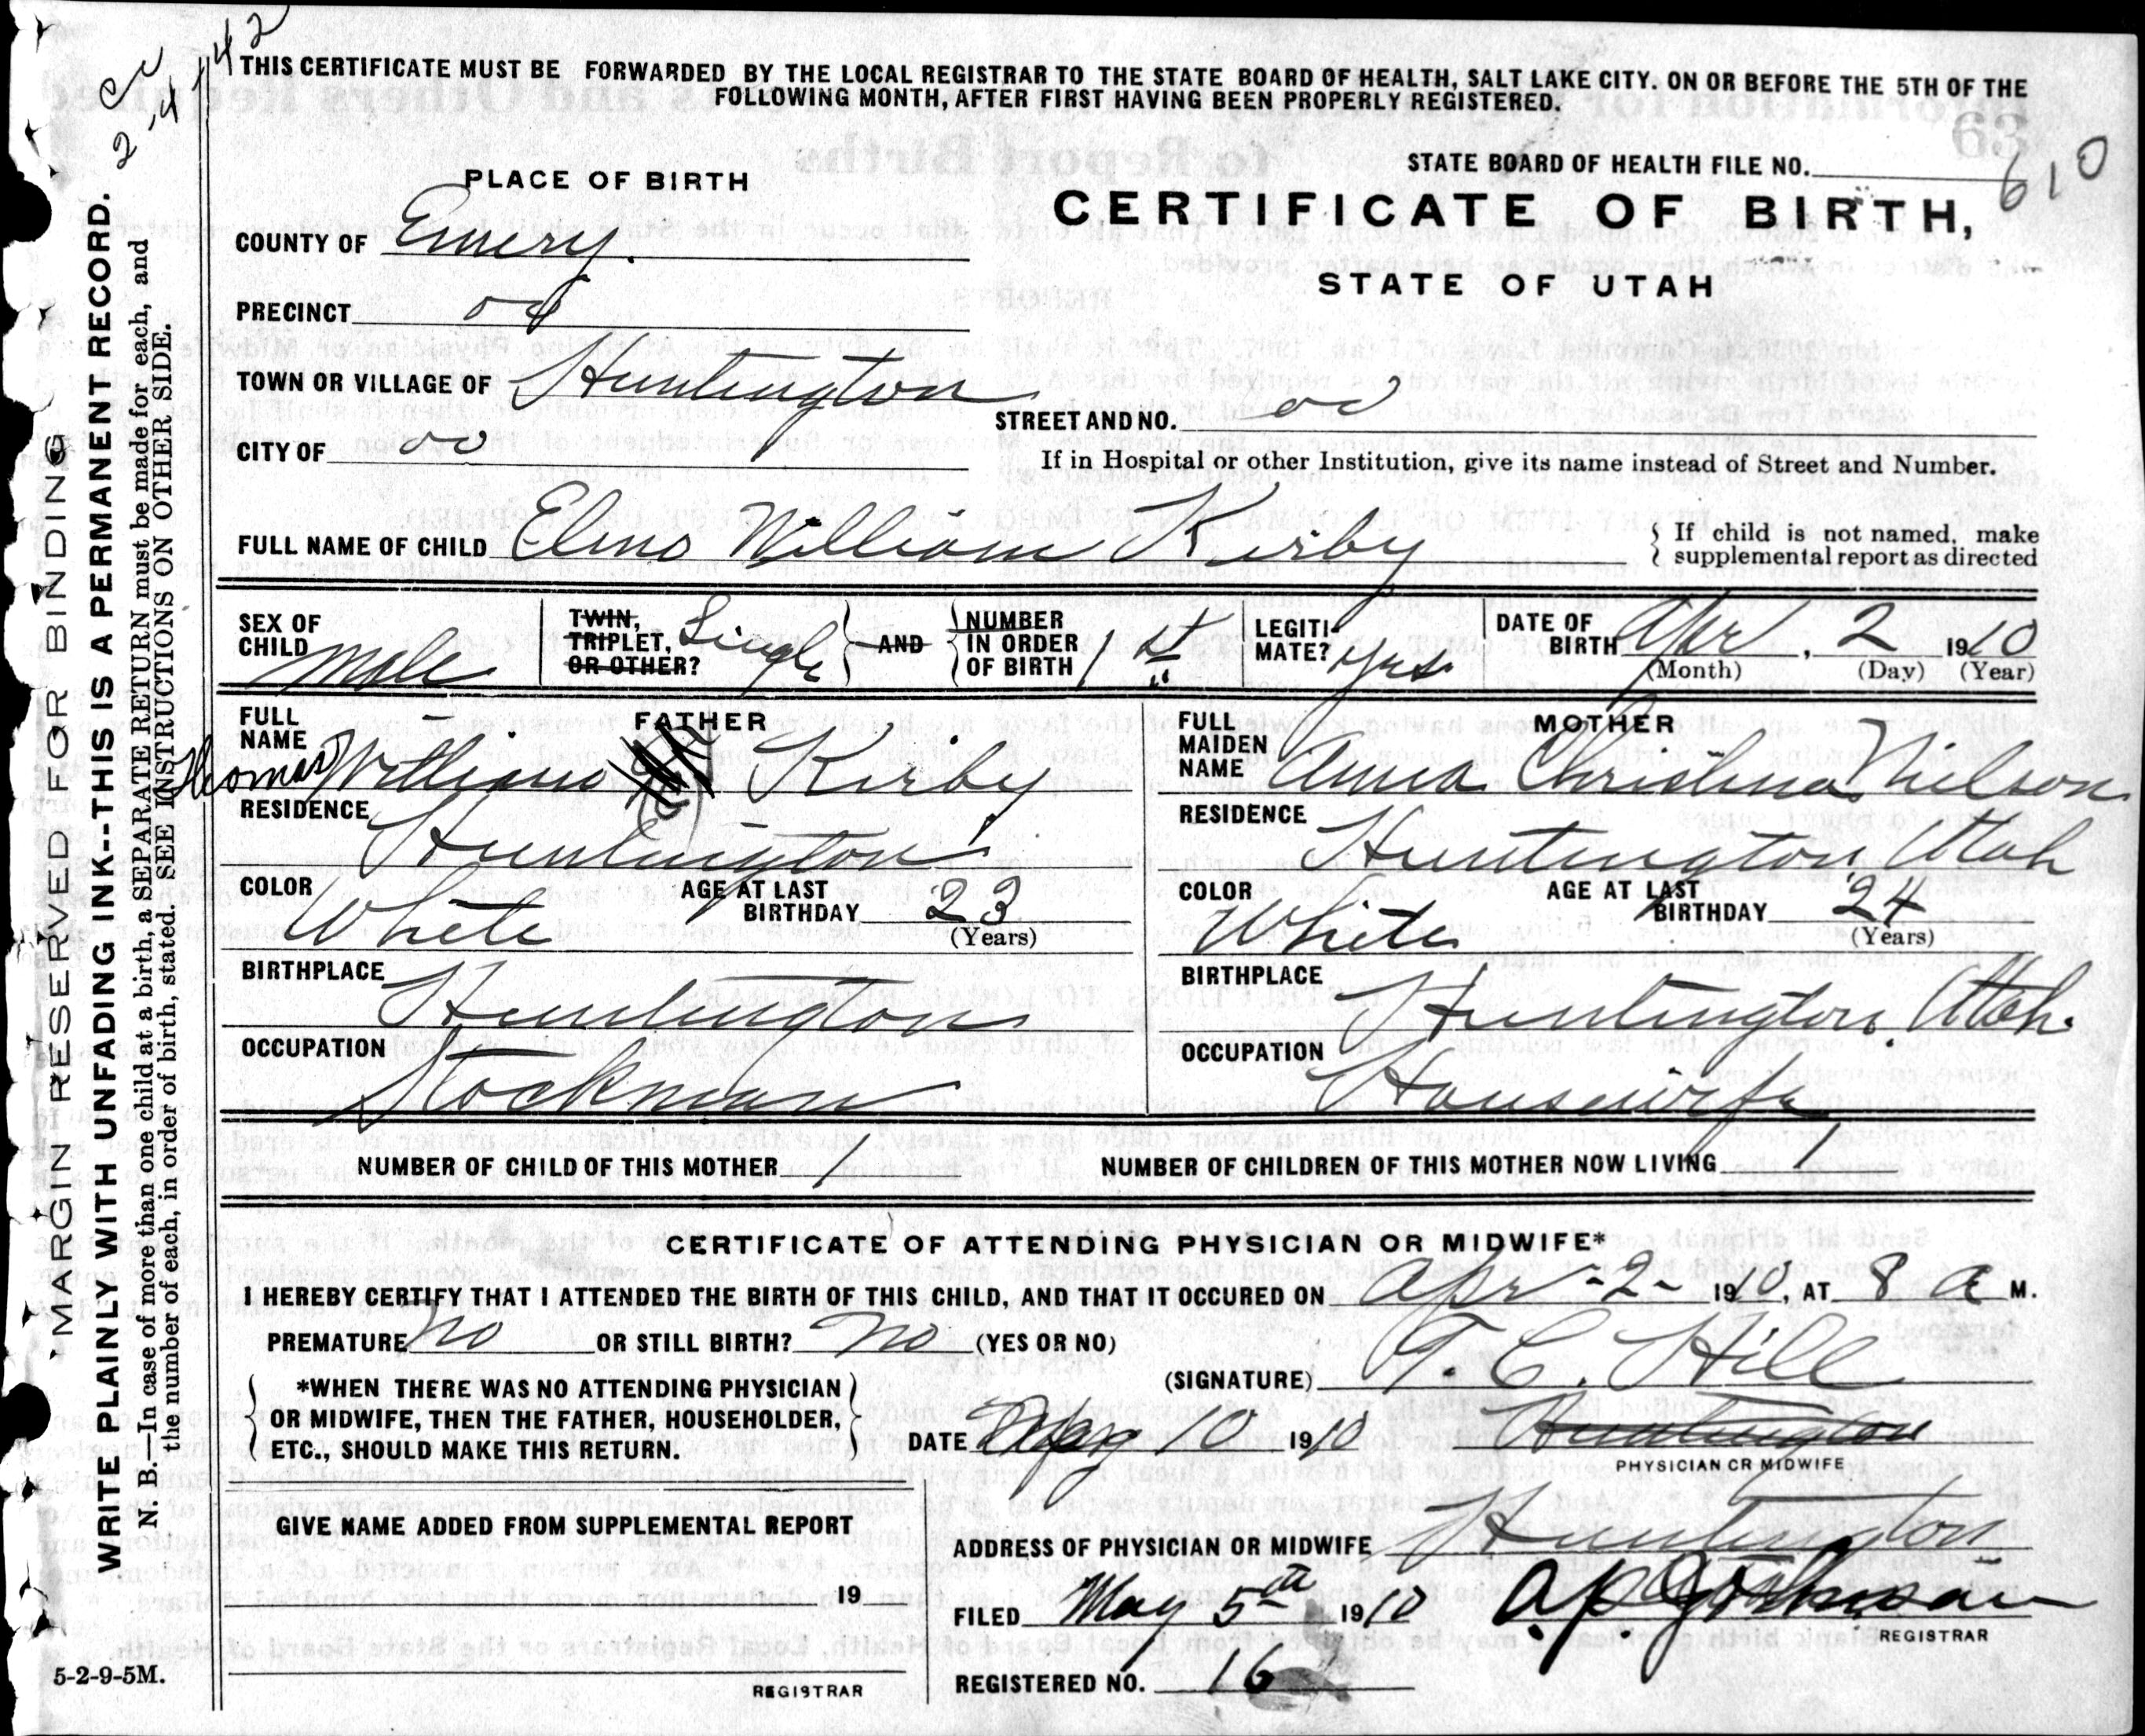 cc
2-4-42
THIS CERTIFICATE MUST BE FORWARDED BY THE LOCAL REGISTRAR TO THE STATE BOARD OF HEALTH, SALT LAKE CITY. ON OR BEFORE THE 5TH OF THE
FOLLOWING MONTH, AFTER FIRST HAVING BEEN PROPERLY REGISTERED.
STATE BOARD OF HEALTH FILE NO. 610
PLACE OF BIRTH
CERTIFICATE OF BIRTH,
STATE OF UTAH
COUNTY OF Emery.
PRECINCT
TOWN OR VILLAGE OF Huntington
STREET AND NO. oo
CITY OF oo
If in Hospital or other Institution, give its name instead of Street and Number.
FULL NAME OF CHILD Elmo William Kirby
{ If child is not named, make
{ supplemental report as directed
SEX OF CHILD male
TWIN, TRIPLET, OR OTHER? Single } AND { NUMBER IN ORDER OF BIRTH 1st
LEGITIMATE? yes
DATE OF BIRTH Apr, 2 1910
(Month) (Day) (Year)
FATHER
FULL NAME Thomas William Kirby
RESIDENCE Huntington
COLOR White AGE AT LAST BIRTHDAY 23
(Years)
BIRTHPLACE Huntington
OCCUPATION Stockman
MOTHER
FULL MAIDEN NAME Anna Christina Nilson
RESIDENCE Huntington, Utah
COLOR White AGE AT LAST BIRTHDAY 24
(Years)
BIRTHPLACE Huntington, Utah.
OCCUPATION Housewife
NUMBER OF CHILD OF THIS MOTHER 1 NUMBER OF CHILDREN OF THIS MOTHER NOW LIVING 1
CERTIFICATE OF ATTENDING PHYSICIAN OR MIDWIFE*
I HEREBY CERTIFY THAT I ATTENDED THE BIRTH OF THIS CHILD, AND THAT IT OCCURED ON Apr -2- 1910, AT 8 a M.
PREMATURE no OR STILL BIRTH? no (YES OR NO)
(SIGNATURE) T. C. Hill
*WHEN THERE WAS NO ATTENDING PHYSICIAN
OR MIDWIFE, THEN THE FATHER, HOUSEHOLDER,
ETC., SHOULD MAKE THIS RETURN.
DATE 1910 Huntington
PHYSICIAN OR MIDWIFE
GIVE NAME ADDED FROM SUPPLEMENTAL REPORT
19
REGISTRAR
ADDRESS OF PHYSICIAN OR MIDWIFE Huntington
FILED May 5th 1910
REGISTRAR
REGISTERED NO. 16
5-2-9-5M.
MARGIN RESERVED FOR BINDING
WRITE PLAINLY WITH UNFADING INK--THIS IS A PERMANENT RECORD.
N. B.—In case of more than one child at a birth, a SEPARATE RETURN must be made for each, and
the number of each, in order of birth, stated. SEE INSTRUCTIONS ON OTHER SIDE.